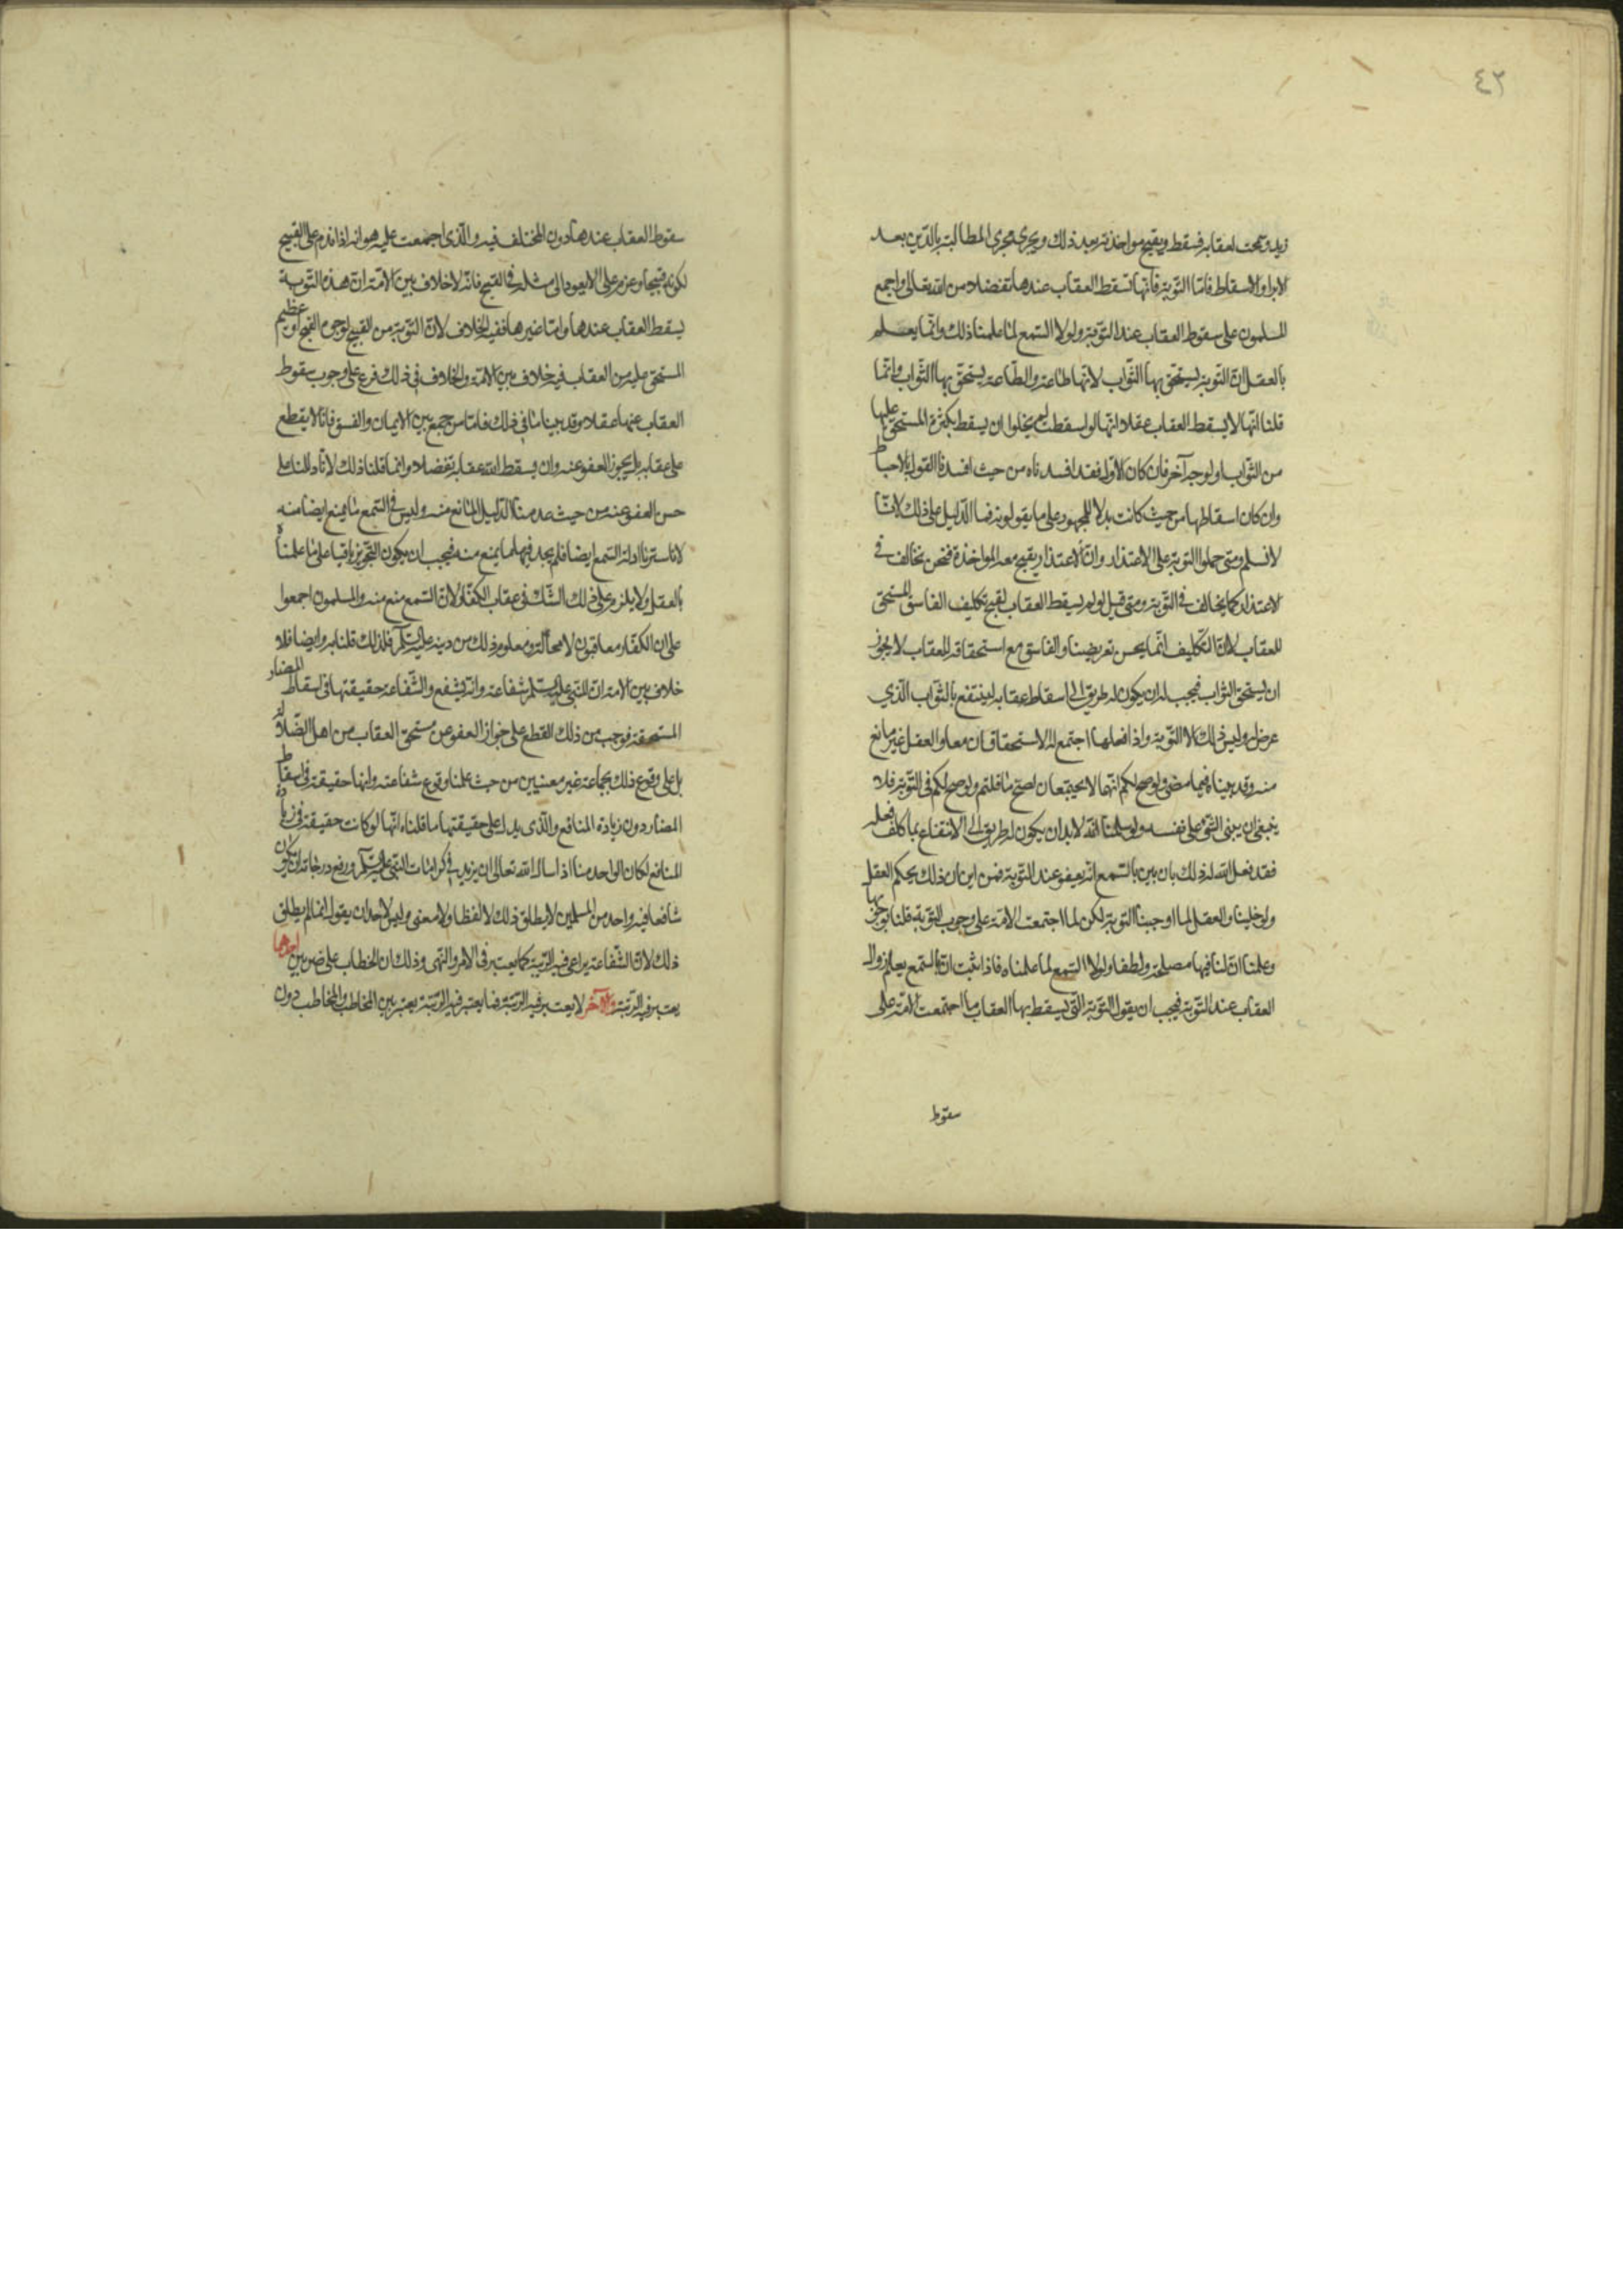 ٤٢
زيد وتمحت لعقابه فسقط ويقبح مواخذته بعد ذلك ويجرى مجرى المطالبة بالدّين بعد
الابرا والاسقاط فامّا التّوبة فانّها تسقط العقاب عندها تفضلا من الله تعالى واجمع
المسلمون على سقوط العقاب عند التّوبة ولولا السّمع لما علمنا ذلك وانّما يعلم
بالعقل انّ التّوبة يستحقّ بها الثّواب لانّها طاعة والطّاعة يستحقّ بها الثّواب وانّما
قلنا انّها لا يسقط العقاب عقلا لانّها لو اسقطت لم يخلوا ان يسقط بكثرة المستحقّ عليها
من الثّواب او لوجه آخر فان كان الاوّل فقد افسدناه من حيث افسدنا القول بالاحباط
وان كان اسقاطها من حيث كانت بدلا للمجهود على ما يقولونه فما الدّليل على ذلك لانّا
لا نسلم ومتى حملوا التوبة على الاعتذار وانّ الاعتذار يقبح معه المواخذة فنحن نخالف فى
الاعتذار كما يخالف فى التّوبة ومتى قيل لو لم يسقط العقاب لقبح تكليف الفاسق المستحقّ
للعقاب لانّ التّكليف انّما يحسن تعريضا والفاسق مع استحقاقه للعقاب لا يجوز
ان يستحق الثواب فيجب له ان يكون له طريق الى اسقاط عقابه لينتفع بالثّواب الّذي
عرض له وليس ذلك الا التّوبة واذا فعلها اجتمع له الاستحقاقان معا والعقل غير مانع
منه وقد بيناه فيما مضى ولو صح لكم انّهما لا يجتمعان لصحّ ما قلتم ولو صح لكم فى التّوبة فلا
ينبغى ان يبنى الشّئ على نفسه ولو سلمنا انّه لا بد ان يكون له طريق الى الانتفاع بما كلف فعله
فقد فعل الله له ذلك بان بين بالسّمع انّه يعفو عند التّوبة فمن اين ان ذلك بحكم العقل
ولو خلينا والعقل لما اوجبنا التوبة لكن لما اجتمعت الامّة على وجوب التّوبة قلنا بوجوبها
وعلمنا انّ لنا فيها مصلحة ولطفا ولولا السّمع لما علمناه فاذا ثبت انّ بالسّمع يعلم زوال
العقاب عند التّوبة فيجب ان يقول التّوبة الّتى يسقط بها العقاب ما اجتمعت الامّة على
سقوط
سقوط العقاب عندها دون المختلف فيه والّذى اجمعت عليه هو انه اذا ندم على القبيح
لكونه قبيحا وعزم على الا يعود الى مثله فى القبح فانّه لا خلاف بين الامّة انّ هذه التّوبة
يسقط العقاب عندها وامّا غيرها ففيه الخلاف لانّ التّوبة من القبيح لوجوه القبح او عظيم
المستحق عليه من العقاب فيه خلاف بين الامّة والخلاف فى ذلك فرع على وجوب سقوط
العقاب عنها عقلا وقد بينا ما فى ذلك فامّا من جمع بين الايمان والفسق فانّا لا يقطع
على عقابه بل يجوز العفو عنه وان يسقط الله عقابه تفضلا وانما قلنا ذلك لانّا دللنا على
حسن العفو عنه من حيث عدمنا الدّليل المانع منه وليس فى السّمع ما يمنع ايضا منه
لانا سبرنا ادلة السّمع ايضا فلم يجد فيها ما يمنع منه فيجب ان يكون التّجويز باقيا على ما علمناه
بالعقل ولا يلزم على ذلك الشّك فى عقاب الكفّار لانّ السّمع منع منه والمسلمون اجمعوا
على ان الكفّار معاقبون لا محالة ومعلوم ذلك من دينه عليه السّلم فلذلك قلنا به وايضا فلا
خلاف بين الامة ان للنّبى عليه السّلم شفاعة وانّه يشفع والشّفاعة حقيقتها فى اسقاط المضار
المستحقة فوجب من ذلك القطع على جواز العفو عن مستحق العقاب من اهل الصّلاة
بل على وقوع ذلك بجماعة غير معينين من حيث علمنا وقوع شفاعته وانها حقيقة فى اسقاط
المضار دون زيادة المنافع والّذى يدل على حقيقتها ما قلناه انّها لو كانت حقيقة فى زيادة
المنافع لكان الواحد منا اذا سال الله تعالى ان يزيد فى كرامات النّبى عليه السّلم ورفع درجاته ان يكون
شافعا فيه واحد من المسلمين لا يطلق ذلك لا لفظا ولا معنى وليس لاحد ان يقول انما لم يطلق
ذلك لانّ الشّفاعة يراعى فيه الرّتبة كما يعتبر فى الامر والنّهى وذلك ان الخطاب على ضربين احدهما
يعتبر فيه الرّتبة والآخر لا يعتبر فيه الرّتبة فما يعتبر فيه الرّتبة يعتبر بين المخاطب والمخاطب دون